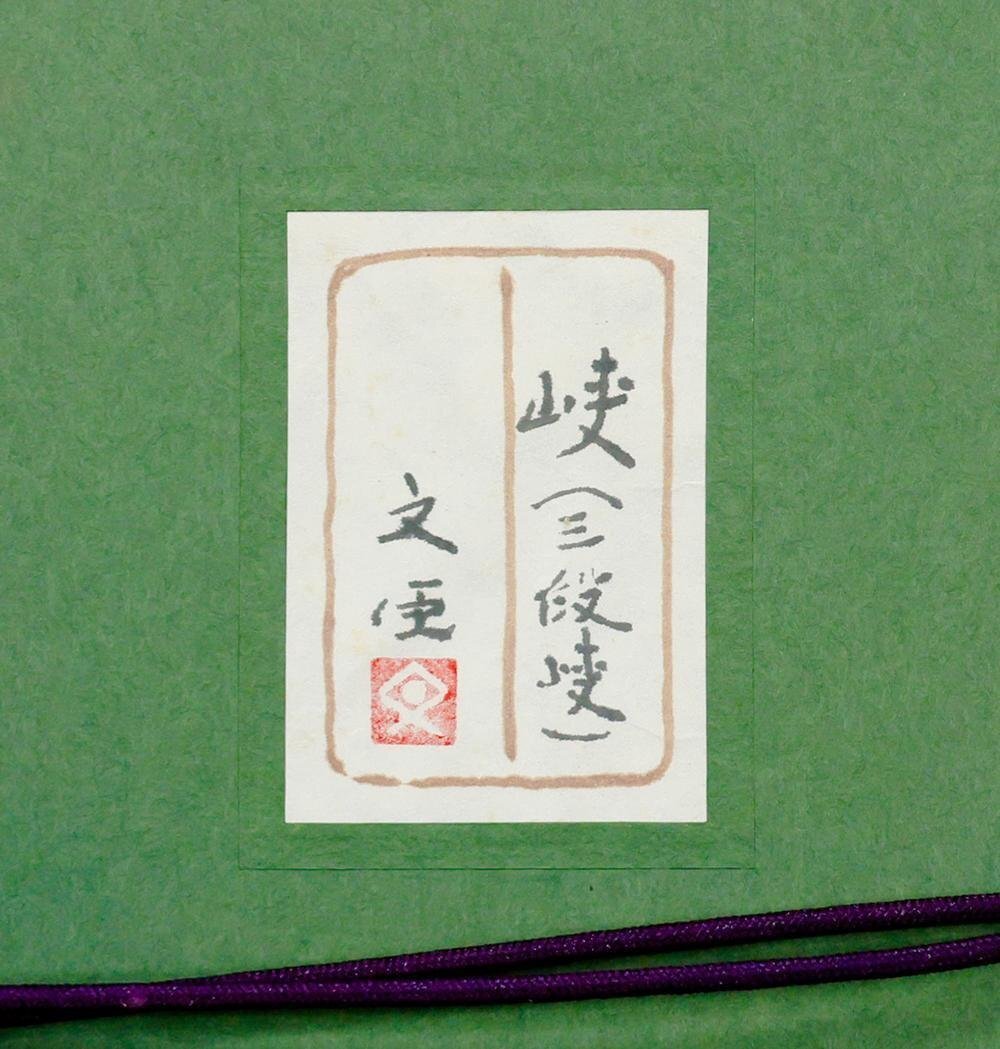 峡(三段峡)
文